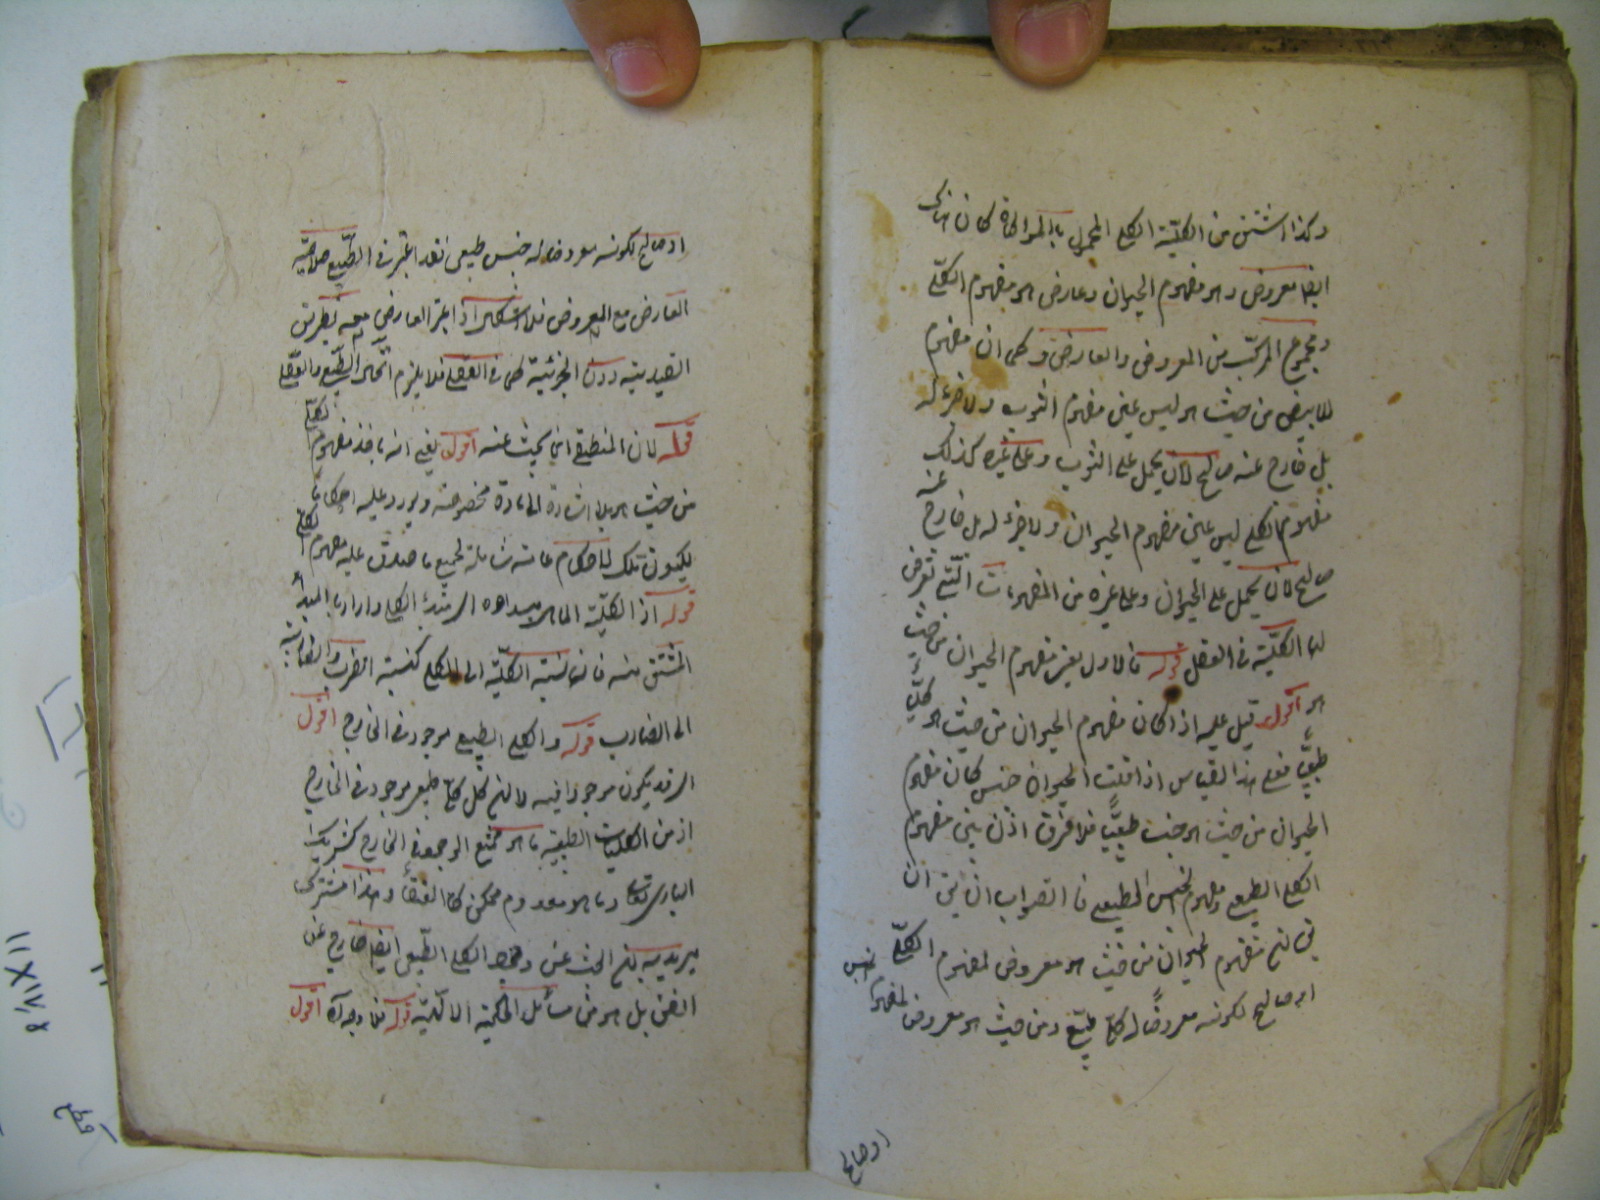 وكذا اشتق من الكلية الكلي المحمول بالمواطاة كان هناك
ايضا معروض وهو مفهوم الحيوان وعارض هو مفهوم الكلي
ومجموع المركب من المعروض والعارض وكما ان مفهوم
الابيض من حيث هو ليس عين مفهوم الثوب ولا جزء له
بل خارج عنه صالح لان يحمل على الثوب وعلى غيره كذلك
مفهوم الكلي ليس عين مفهوم الحيوان ولا جزء له بل خارج عنه
صالح لان يحمل على الحيوان وعلى غيره من المفهومات التي تعرض
لها الكلية في العقل قوله فالاول يعني مفهوم الحيوان من حيث
هو اقول قيل عليه اذا كان مفهوم الحيوان من حيث هو كلي
طبيعي فعلى هذا القياس اذا قلت الحيوان جنس كان مفهوم
الحيوان من حيث هو جنسا طبيعيا فلا فرق اذن بين مفهوم
الكلي الطبيعي ومفهوم الجنس الطبيعي فالصواب ان يق ان
مفهوم الحيوان من حيث هو معروض لمفهوم الكلي
او صالح لكونه معروضا له كلي طبيعي ومن حيث هو معروض لمفهوم الجنس
او صالح
او صالح لكونه معروضا له جنس طبيعي فقد اعتبر في الطبيعي صلاحية
العارض مع المعروض فلا اشكال اذا اعتبر العارض معه بطريق
القيدية دون الجزئية كما في العقلي فلا يلزم اتحاد الطبيعي والعقلي
قوله لان المنطقي انما يبحث عنه اقول يعني انه ياخذ مفهوم الكلي
من حيث هو بلا اشارة الى مادة مخصوصة ويورد عليه احكاما
ليكون تلك الاحكام عامة شاملة لجميع ما صدق عليه مفهوم الكلي
قوله اذ الكلية انما هي مبداه اقول المبدأ
المشتق منه فان نسبة الكلية الى الكلي كنسبة الضرب
الى الضارب قوله والكلي الطبيعي موجود في الخارج اقول
قد يكون موجودا فيه لا ان كل كلي طبيعي موجود في الخارج
اذ من الكليات الطبيعية ما هو ممتنع الوجود في الخارج كشريك
الباري تعالى وما هو معدوم ممكن كالعنقاء وهذا مشترك
البحث عن وجود الكلي الطبيعي ايضا خارج عن
الفن بل هو من مسائل الحكمة الالهية قوله فلا وجه اه اقول